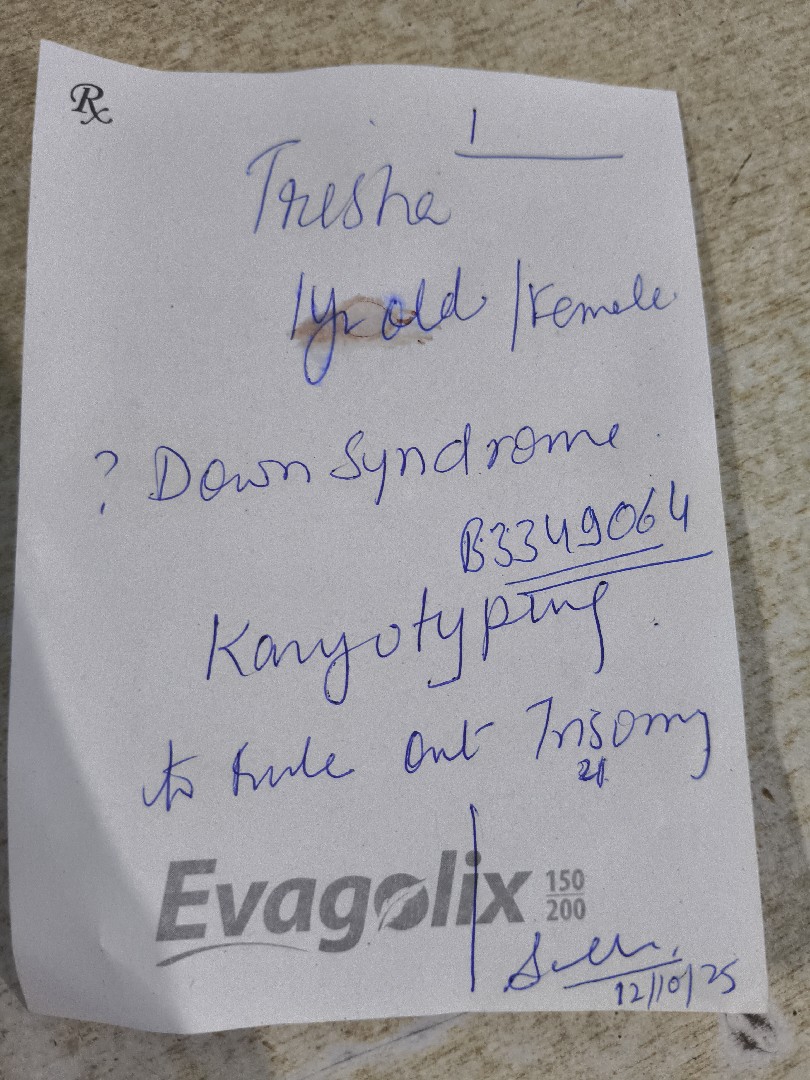 Rx
1
Tresha
1yr old /Female
? Down Syndrome
B3349064
Karyotyping
to rule out Trisomy
21
Evagolix 150
200
12/10/25